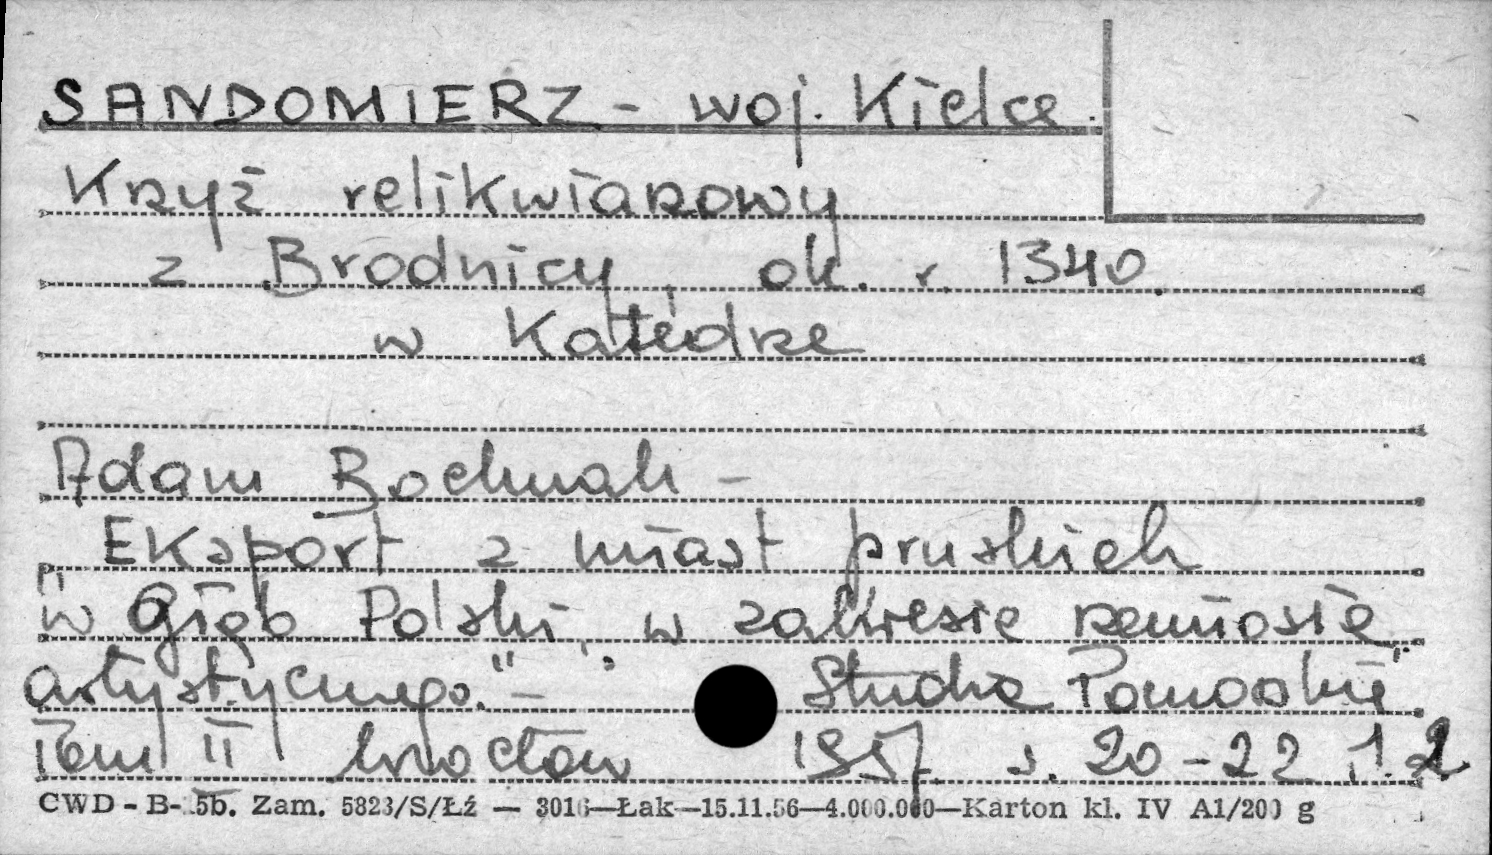 SANDOMIERZ - woj. Kielce.
Krzyż relikwiarzowy
z Brodnicy, ok. r. 1340.
w Katedrze
Adam Bochnak -
Eksport z miast pruskich
"w głąb Polski w zakresie rzemiosła
artystycznego." - "Studia Pomorskie"
Tom II Wrocław 1957 s. 20-22
CWD - B- 5b. Zam. 5823/S/Łź — 3016—Łak—15.11.56—4.000.000—Karton kl. IV A1/200 g